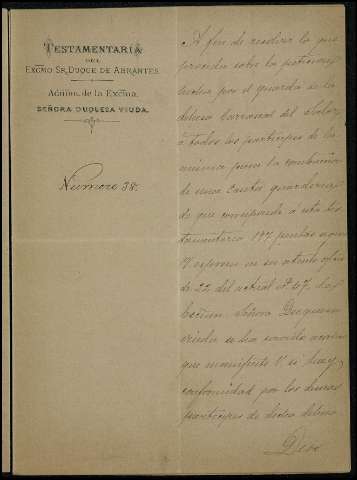 TESTAMENTARIA
DEL
EXCMO SR. DUQUE DE ABRANTES
Admon. de la Excma.
SEÑORA DUQUESA VIUDA.
Número 38.
A fin de resolver lo que
proceda sobre la peticion
hecha por el guarda de la
dehesa Carrascal del
á todos los partícipes de la
misma para la
de una
de que corresponde á esta tes-
tamentaria 197 pesetas
V. expresa en su atento oficio
de 22 del actual nº 47, la
Excma. Señora Duquesa
viuda se ha servido
que manifieste V. si hay
conformidad por los demas
partícipes de dicha dehesa
Dios